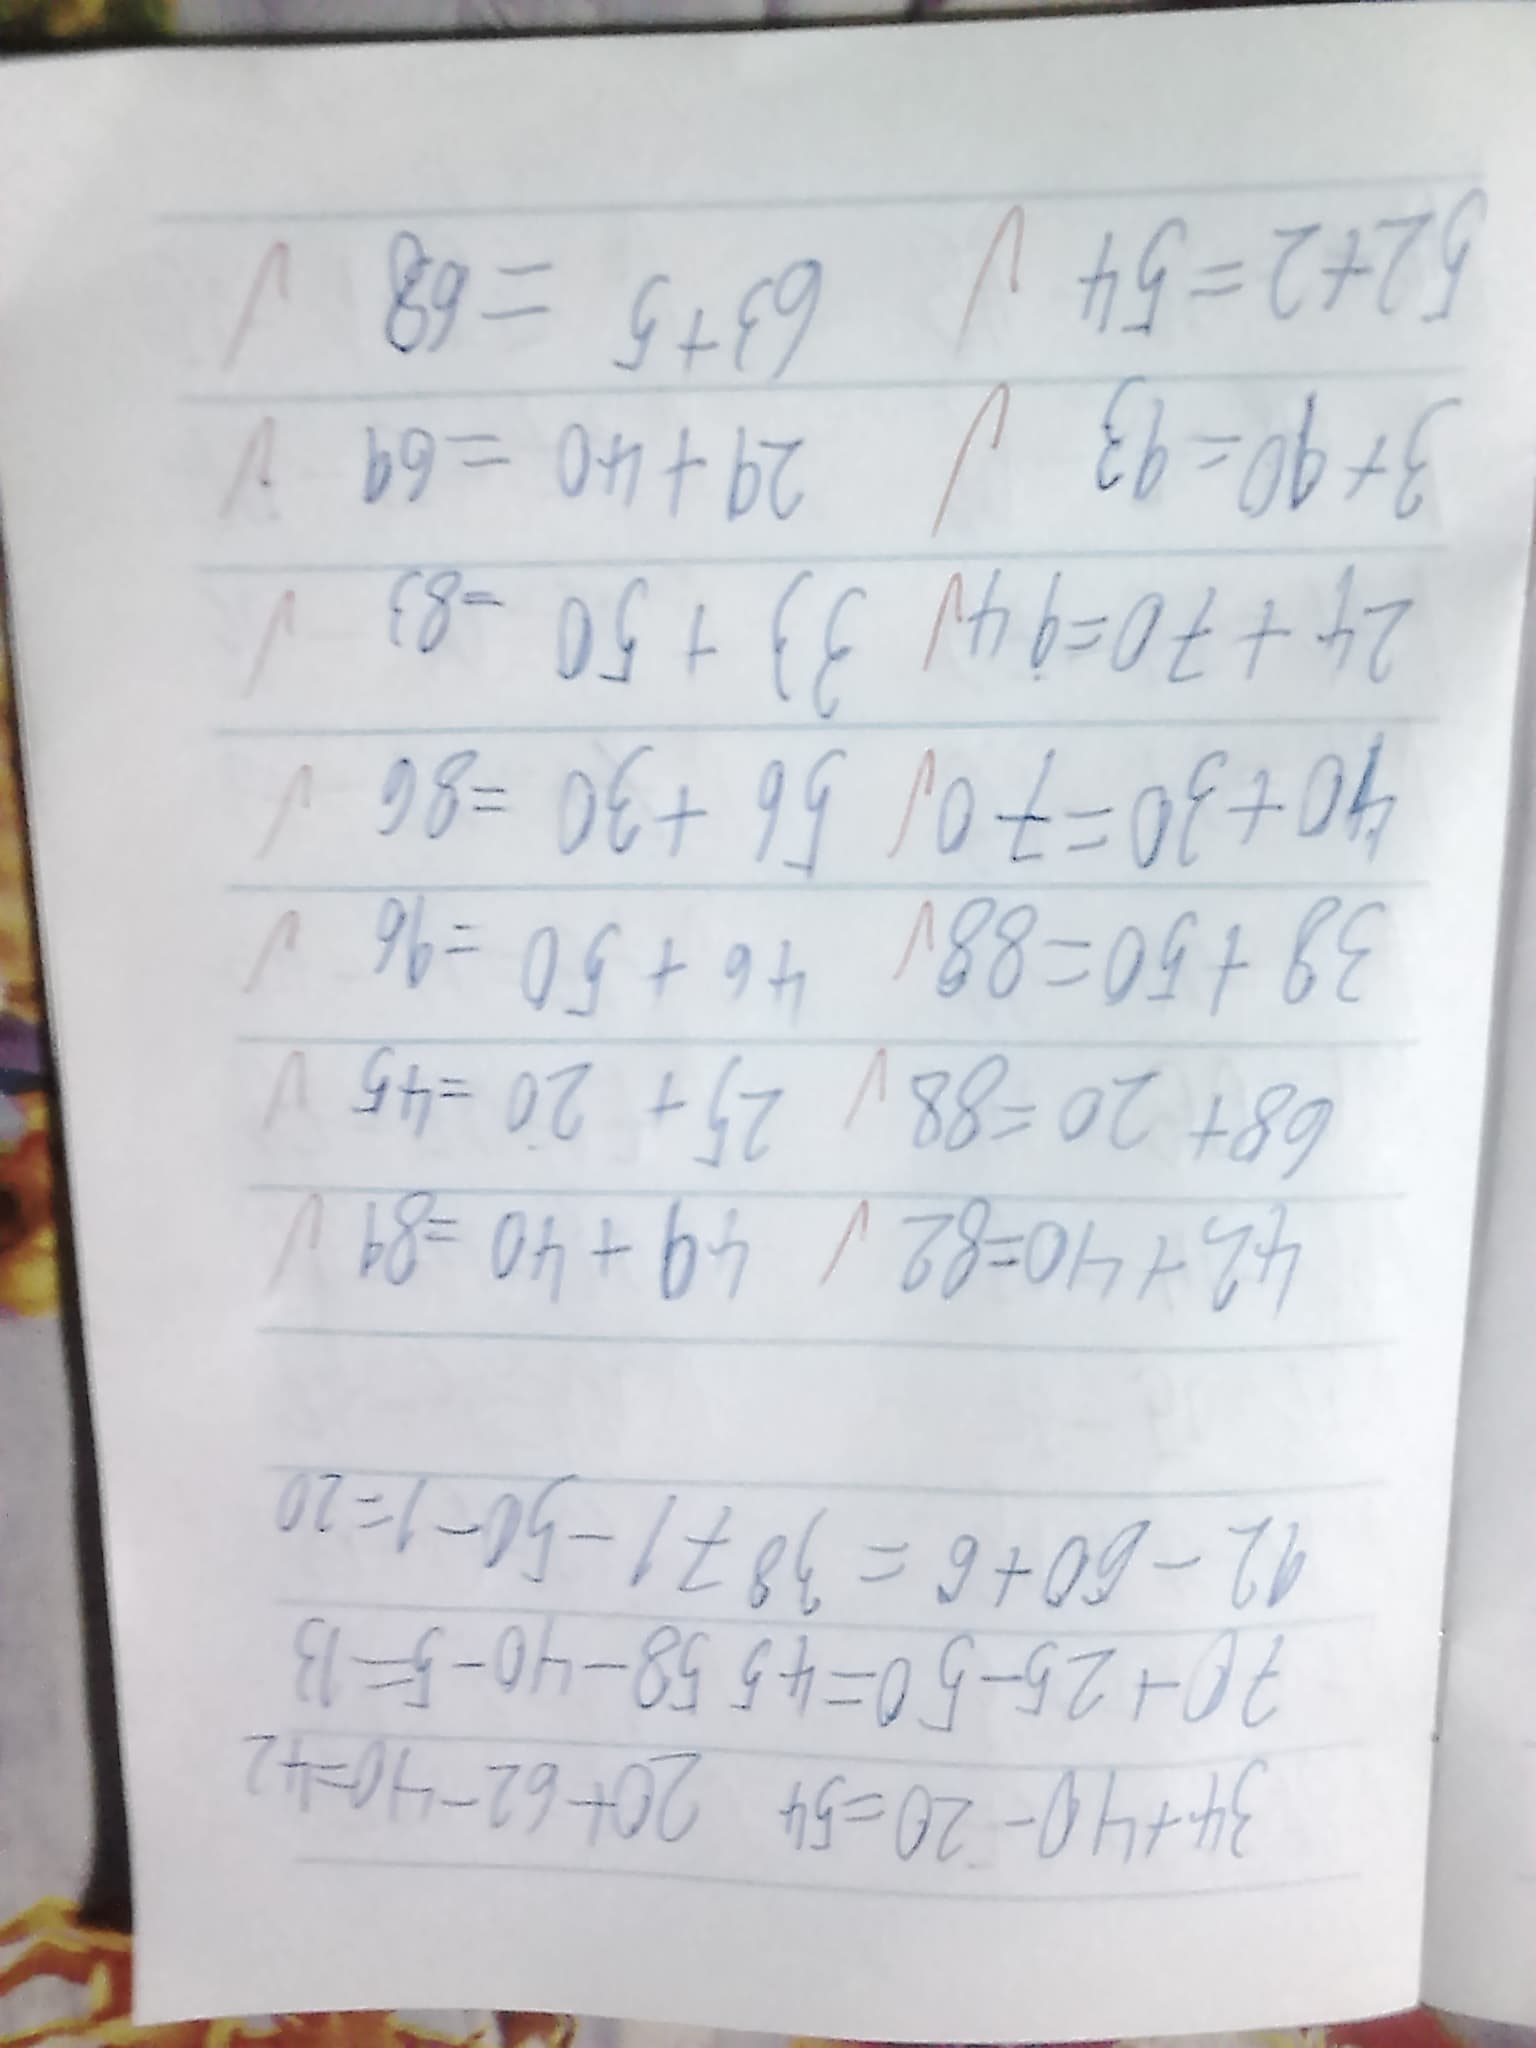 34+40-20=54 20+62-40=42
70+25-50=45 58-40-5=13
92-60+6=38 71-50-1=20
42+40=82 49+40=89
68+20=88 25+20=45
38+50=88 46+50=96
40+30=70 56+30=86
24+70=94 33+50=83
3+90=93 29+40=69
52+2=54 63+5=68